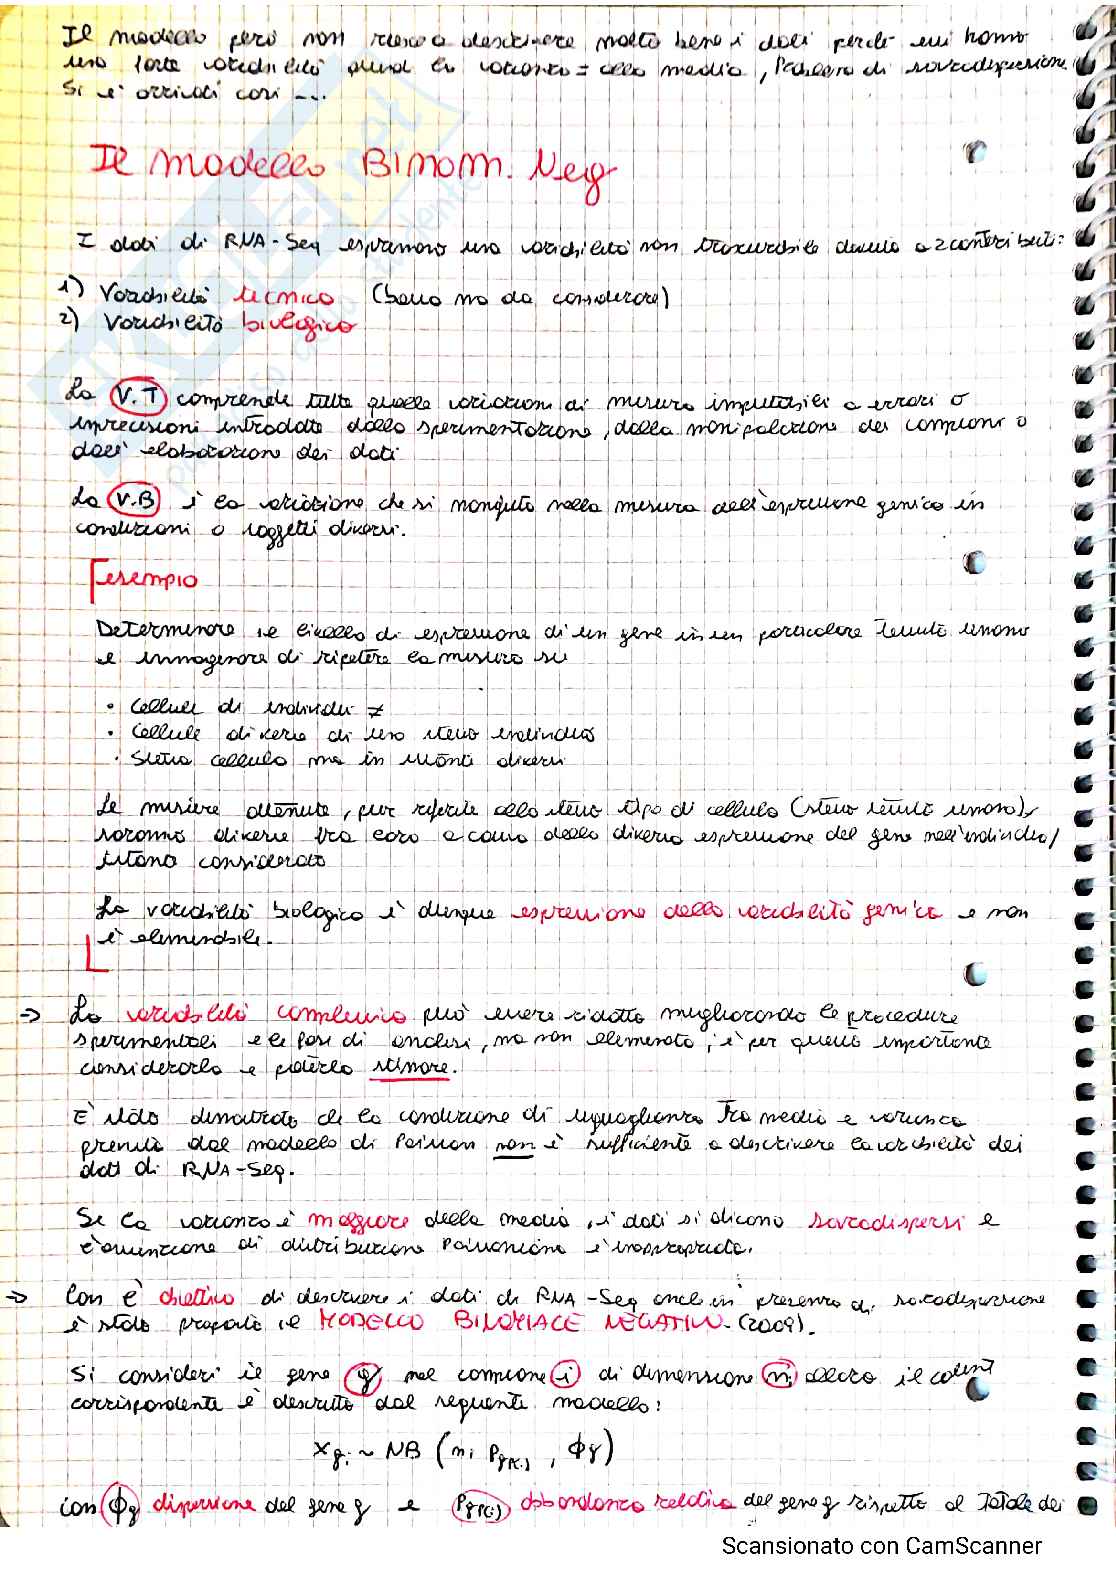 Il modello però non riesce a descrivere molto bene i dati perché essi hanno
una forte variabilità quindi la varianza ≠ alla media, Problema di sovradispersione
Si è arrivati così ...
Il modello Binom. Neg
I dati di RNA-Seq esprimono una variabilità non trascurabile dovuta a 2 contributi:
1) Variabilità tecnica (bassa ma da considerare)
2) Variabilità biologica
La V.T comprende tutte quelle variazioni di misura imputabili a errori o
imprecisioni introdotte dalla sperimentazione, dalla manipolazione dei campioni o
dall'elaborazione dei dati
La V.B è la variazione che si manifesta nella misura dell'espressione genica in
condizioni o soggetti diversi.
esempio
Determinare il livello di espressione di un gene in un particolare tessuto umano
e immaginare di ripetere la misura su
• Cellule di individui ≠
• Cellule diverse di uno stesso individuo
• Stessa cellula ma in istanti diversi
Le misure ottenute, pur riferite allo stesso tipo di cellula (stesso tessuto umano),
saranno diverse tra loro a causa della diversa espressione del gene nell'individuo/
istante considerato
La variabilità biologica è dunque espressione della variabilità genica e non
è eliminabile.
⇒ La variabilità complessiva può essere ridotta migliorando le procedure
sperimentali e le fasi di analisi, ma non eliminata, è per questo importante
considerarla e poterla stimare.
È stato dimostrato che la condizione di uguaglianza tra media e varianza
prevista dal modello di Poisson non è sufficiente a descrivere la variabilità dei
dati di RNA-Seq.
Se la varianza è maggiore della media, i dati si dicono sovradispersi e
l'assunzione di distribuzione Poissoniana è inappropriata.
⇒ Con l'obiettivo di descrivere i dati di RNA-Seq anche in presenza di sovradispersione
è stato proposto il MODELLO BINOMIALE NEGATIVO (2009).
Si consideri il gene g nel campione i di dimensione ni allora il count
corrispondente è descritto dal seguente modello:
Xgi ~ NB (ni Pgk(i), ϕg)
con ϕg dispersione del gene g e Pgk(i) abbondanza relativa del gene g rispetto al totale dei
Scansionato con CamScanner